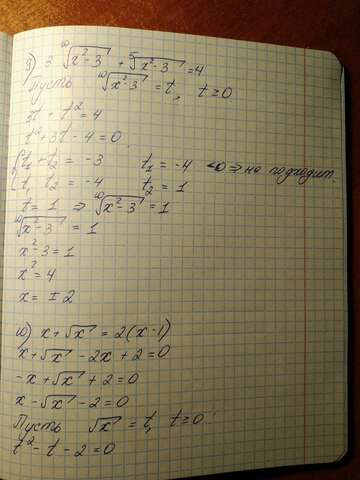 9) 3 ¹⁰√(x²-3) + ⁵√(x²-3) = 4
Пусть ¹⁰√(x²-3) = t, t ≥ 0
3t + t² = 4
t² + 3t - 4 = 0
{ t₁ + t₂ = -3 t₁ = -4 <0 ⇒ не подходит.
{ t₁ t₂ = -4 t₂ = 1
t = 1 ⇒ ¹⁰√(x²-3) = 1
¹⁰√(x²-3) = 1
x² - 3 = 1
x² = 4
x = ± 2
10) x + √x = 2(x-1)
x + √x - 2x + 2 = 0
-x + √x + 2 = 0
x - √x - 2 = 0
Пусть √x = t, t ≥ 0
t² - t - 2 = 0